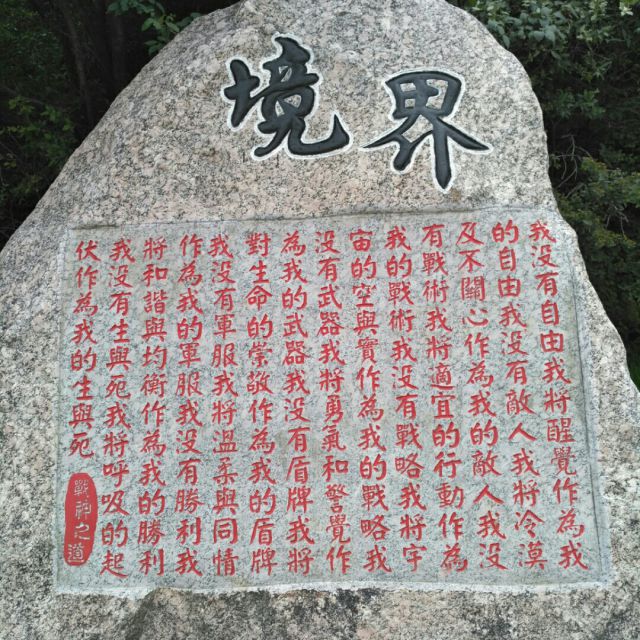 境界
我没有自由我將醒覺作為我
的自由我没有敵人我將冷漠
及不關心作為我的敵人我没
有戰術我將適宜的行動作為
我的戰術我没有戰略我將宇
宙的空與實作為我的戰略我
没有武器我將勇氣和警覺作
為我的武器我没有盾牌我將
對生命的崇敬作為我的盾牌
我没有軍服我將溫柔與同情
作為我的軍服我没有勝利我
將和諧與均衡作為我的勝利
我没有生與死我將呼吸的起
伏作為我的生與死
戰神之道